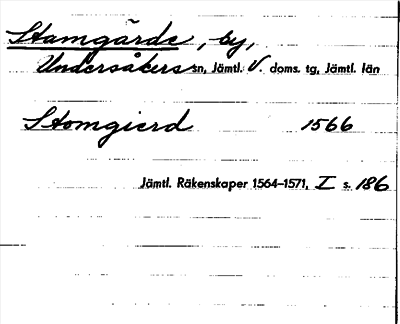 Stamgärde, by,
Undersåkers sn, Jämtl. V. doms. tg, Jämtl. län
Stomgierd 1566
Jämtl. Räkenskaper 1564–1571, I s. 186